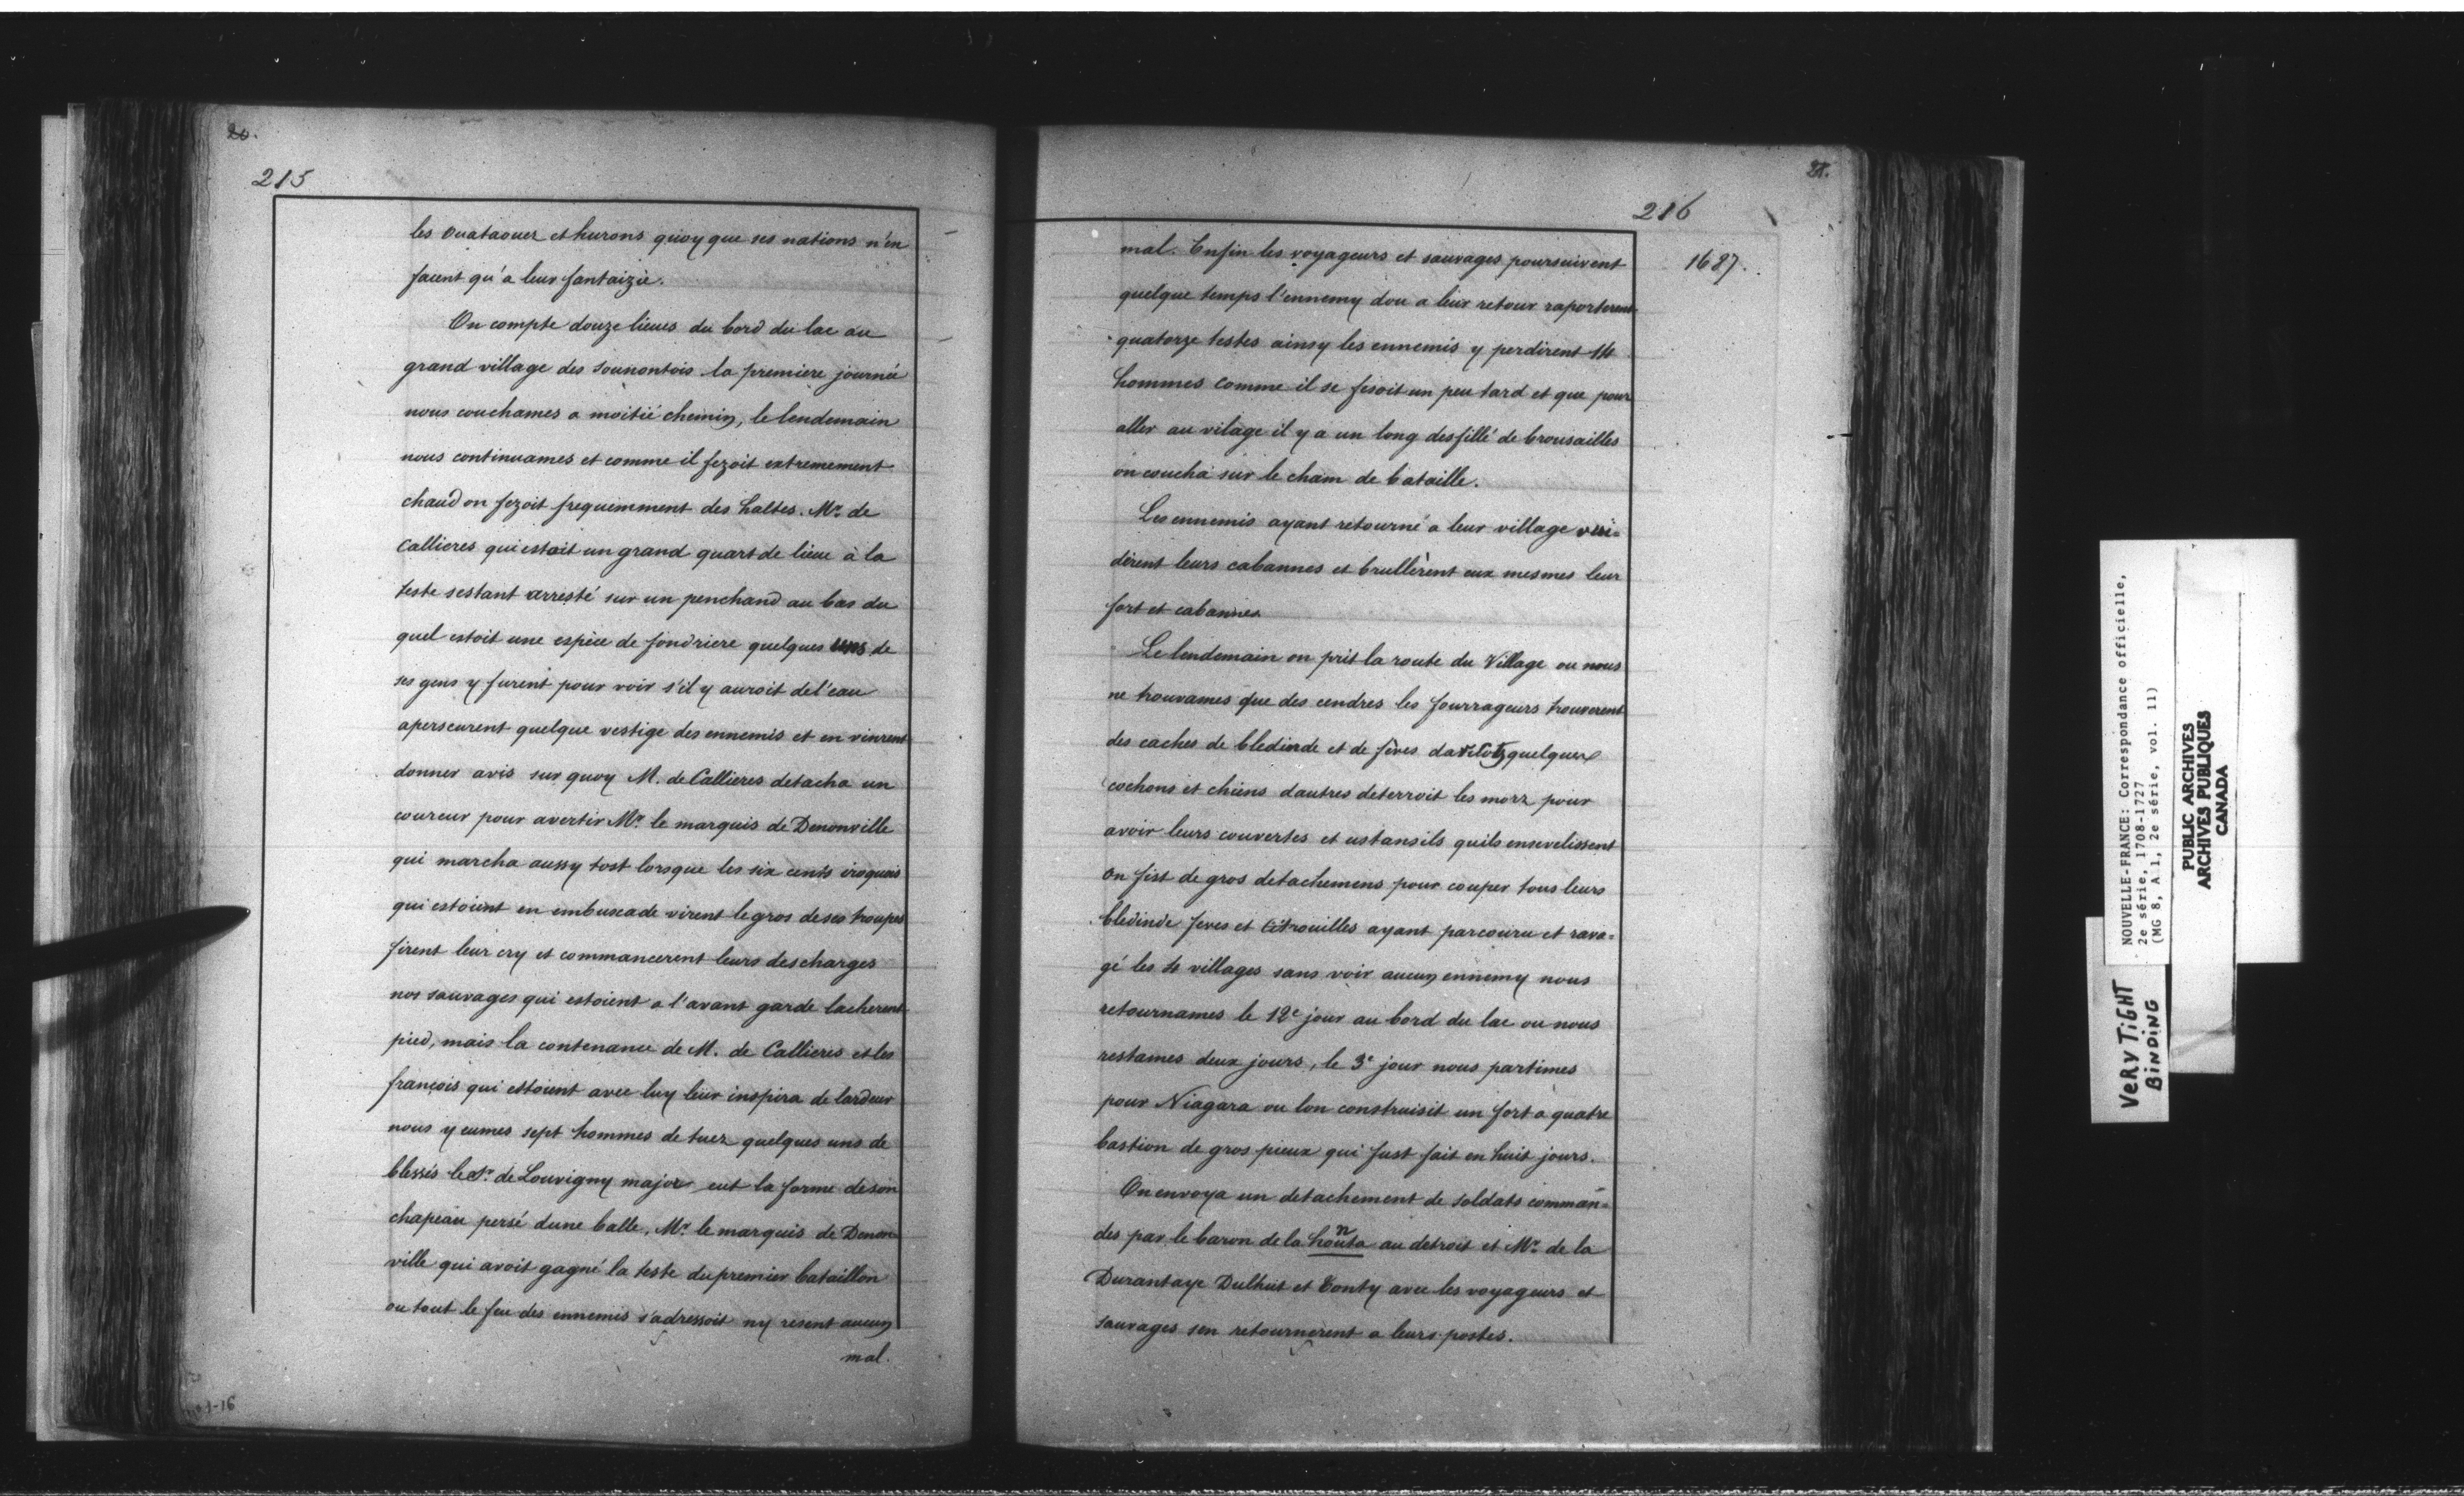 20.
215
les ouataouez et hurons quoy que ses nations n'en
facent qu'a leur fantaizie.
On compte douze lieues du bord du lac au
grand village des sounontois la premiere journée
nous couchames a moitié chemin, le lendemain
nous continuames et comme il fezoit extremement
chaud on fezoit frequemment des haltes. Mr. de
Callieres qui estoit un grand quart de lieue à la
teste sestant arresté sur un penchand au bas du
quel estoit une espèce de fondriere quelques uns de
ses gens y furent pour voir s'il y auroit de l'eau
aperseurent quelque vestige des ennemis et en vinrent
donner avis sur quoy M. de Callieres detacha un
coureur pour avertir Mr. le marquis de Denonville
qui marcha aussy tost lorsque les six cents iroquois
qui estoient en embuscade virent le gros de ses troupes
firent leur cry et commancerent leurs descharges
nos sauvages qui estoient a l'avant garde lacherent
pied, mais la contenance de M. de Callieres et les
françois qui estoient avec luy leur inspira de lardeur
nous y eumes sept hommes de tuez quelques uns de
blessés le Sr. de Louvigny major eut la forme de son
chapeau persé dune balle, Mr. le marquis de Denon
ville qui avoit gagné la teste du premier bataillon
ou tout le feu des ennemis s'adressoit ny resent aucun
mal.
no 1-16
216
1687.
mal. Enfin les voyageurs et sauvages poursuivent
quelque temps l'ennemy dou a leur retour raporterent
quatorze testes ainsy les ennemis y perdirent 14
hommes comme il se fesoit un peu tard et que pour
aller au vilage il y a un long desfillé de brousailles
on coucha sur le cham de bataille.
Les ennemis ayant retourné a leur village vui=
dèrent leurs cabannes et brullèrent eux mesmes leur
fort et cabannes
Le lendemain on prit la route du Village ou nous
ne trouvames que des cendres les fourrageurs trouverent
des caches de bledinde et de fèves quelques
cochons et chiens dautres deterroit les morz pour
avoir leurs couvertes et ustansils quils ensevelissent
on fist de gros detachemens pour couper tous leurs
bledinde feves et Citrouilles ayant parcouru et rava=
gé les 4 villages sans voir aucun ennemy nous
retournames le 12e jour au bord du lac ou nous
restames deux jours, le 3e jour nous partimes
pour Niagara ou lon construisit un fort a quatre
bastion de gros pieux qui fust fait en huit jours.
On envoya un detachement de soldats comman=
des par le baron de la honta au detroit et Mr. de la
Durantaye Dulhut et Tonty avec les voyageurs et
sauvages sen retournerent a leurs postes.
NOUVELLE-FRANCE: Correspondance officielle,
2e série, 1708-1727
(MG 8, A 1, 2e série, vol. 11)
PUBLIC ARCHIVES
ARCHIVES PUBLIQUES
CANADA
VERY TIGHT
BINDING